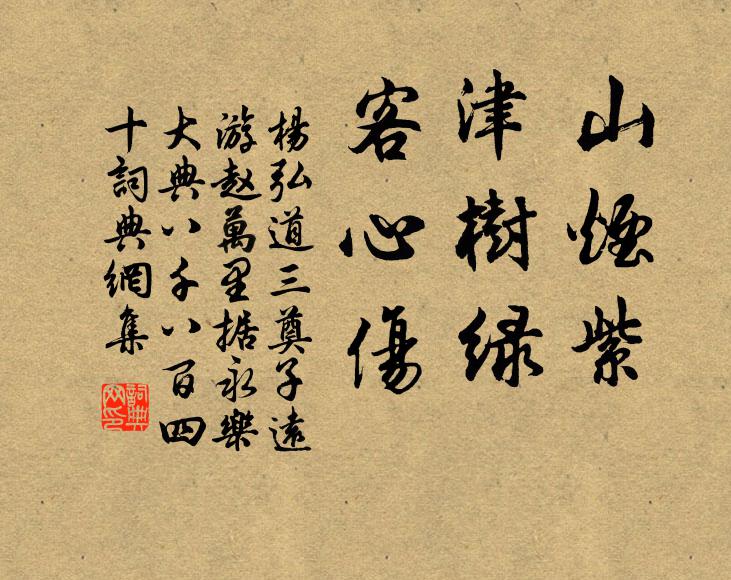 山煙紫
津樹緑
客心傷
楊弘道三奠子遠
游赵萬里据永樂
大典八千八百四
十詞典網集
詞典
网印